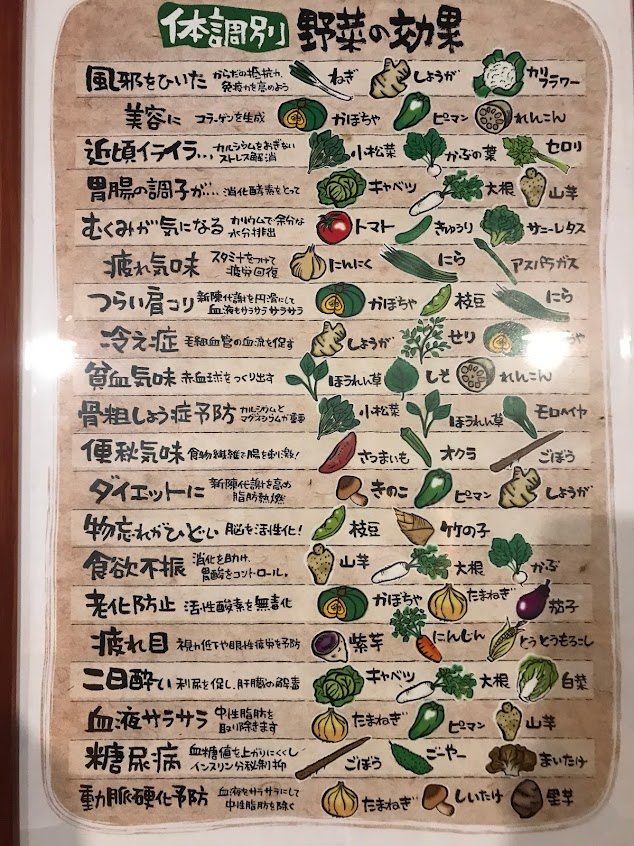 体調別 野菜の効果
風邪をひいた からだの抵抗力、免疫力を高めよう ねぎ しょうが カリフラワー
美容に コラーゲンを生成 かぼちゃ ピーマン れんこん
近頃イライラ… カルシウムをおぎないストレス解消 小松菜 かぶの葉 セロリ
胃腸の調子が… 消化酵素をとって キャベツ 大根 山芋
むくみが気になる カリウムで余分な水分排出 トマト きゅうり サニーレタス
疲れ気味 スタミナをつけて疲労回復 にんにく にら アスパラガス
つらい肩コリ 新陳代謝を円滑にして血液もサラサラサラサラ かぼちゃ 枝豆 にら
冷え症 毛細血管の血流を促す しょうが せり
貧血気味 赤血球をつくり出す ほうれん草 しそ れんこん
骨粗しょう症予防 カルシウムとマグネシウムが重要 小松菜 ほうれん草 モロヘイヤ
便秘気味 食物繊維で腸を刺激! さつまいも オクラ ごぼう
ダイエットに 新陳代謝を高め脂肪熱燃 きのこ ピーマン しょうが
物忘れがひどい 脳を活性化! 枝豆 竹の子
食欲不振 消化を助け、胃酸をコントロール。 山芋 大根 かぶ
老化防止 活性酸素を無毒化 かぼちゃ たまねぎ 茄子
疲れ目 視力低下や眼性疲労を予防 紫芋 にんじん とうとうもろこし
二日酔い 利尿を促し、肝臓の解毒 キャベツ 大根 白菜
血液サラサラ 中性脂肪を取り除きます たまねぎ ピーマン 山芋
糖尿病 血糖値を上がりにくくしインスリン分泌制抑 ごぼう ごーやー まいたけ
動脈硬化予防 血液をサラサラにして中性脂肪を除く たまねぎ しいたけ 里芋